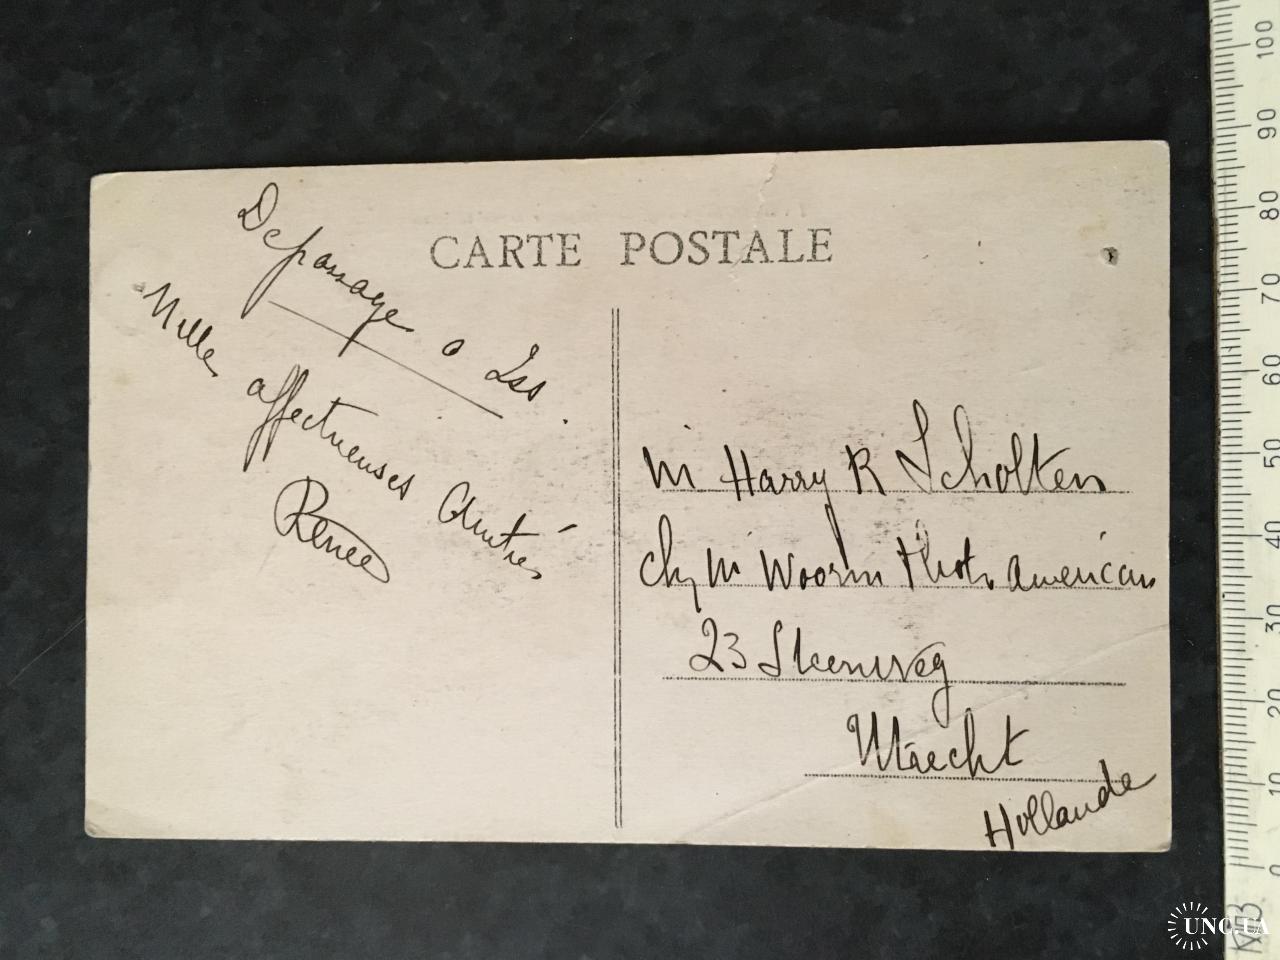 CARTE POSTALE
De passage a Iss.
Mille affectueuses
Renee
M Harry R Scholten
chz M Woorm american
23 Steenweg
Utrecht
Hollande
100
90
80
70
60
50
40
30
20
10
0
UNC.UA